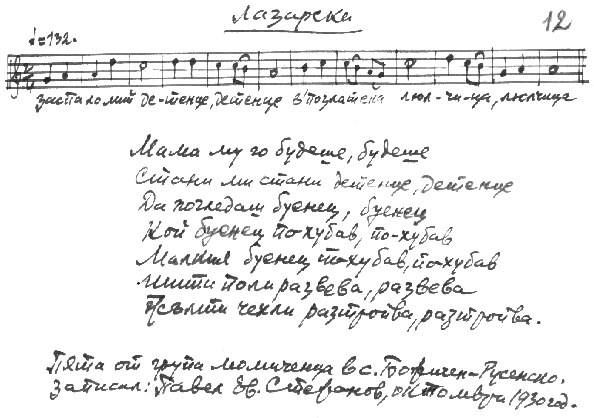 Лазарска
12
♩=132.
заспало ми й де-тенце, детенце в'позлатена люл-чи-ца, люлчица
Мама му го будеше, будеше
Стани ми стани детенце, детенце
Да погледаш буенец, буенец
Кой буенец по-хубав, по-хубав
буенец по-хубав, по-хубав
поли развева, развева
чехли разтройва, разтройва.
Пята от група момиченца в с. Русенско.
Записал: Павел Ев. Стефанов, октомври 1930 год.